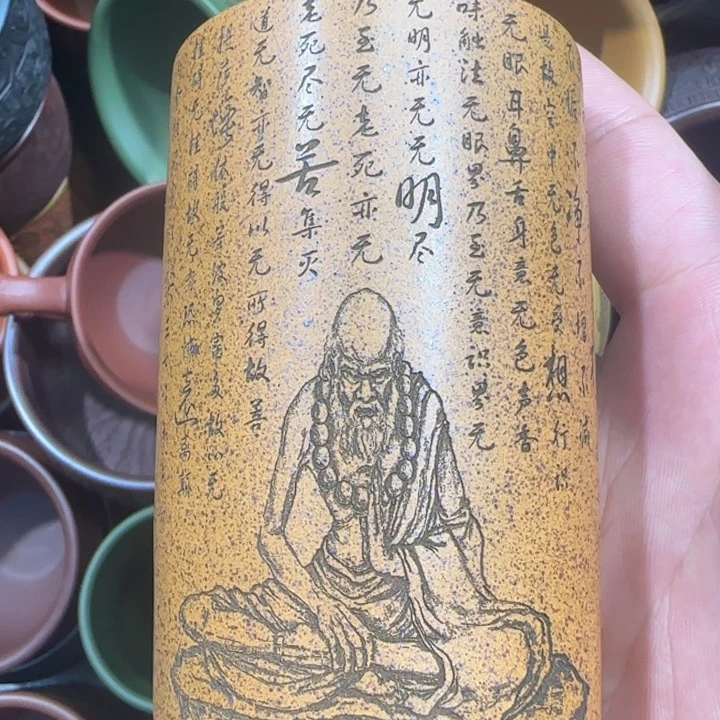 不垢不净不增不减
是故空中无色无受想行识
无眼耳鼻舌身意无色声香
味触法无眼界乃至无意识界无
无明亦无无明尽
乃至无老死亦无
老死尽无苦集灭
道无智亦无得以无所得故菩
提萨埵依般若波罗蜜多故心无
挂碍无挂碍故无有恐怖远离颠